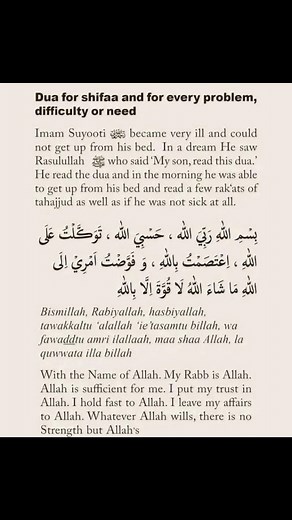 Dua for shifaa and for every problem,
difficulty or need
Imam Suyooti ﷺ became very ill and could
not get up from his bed. In a dream He saw
Rasulullah ﷺ who said ‘My son, read this dua.’
He read the dua and in the morning he was able
to get up from his bed and read a few rak‘ats of
tahajjud as well as if he was not sick at all.
بِسْمِ اللهِ رَبِّيَ اللهِ ، حَسْبِيَ اللهِ ، تَوَكَّلْتُ عَلَى
اللهِ ، اِعْتَصَمْتُ بِاللهِ ، وَ فَوَّضْتُ اَمْرِيْ اِلَى
اللهِ مَا شَاءَ اللهُ لَا قُوَّةَ اِلَّا بِاللهِ
Bismillah, Rabiyallah, hasbiyallah,
tawakkaltu ‘alallah ‘ie’tasamtu billah, wa
fawaddtu amri ilallaah, maa shaa Allah, la
quwwata illa billah
With the Name of Allah. My Rabb is Allah.
Allah is sufficient for me. I put my trust in
Allah. I hold fast to Allah. I leave my affairs
to Allah. Whatever Allah wills, there is no
Strength but Allah's